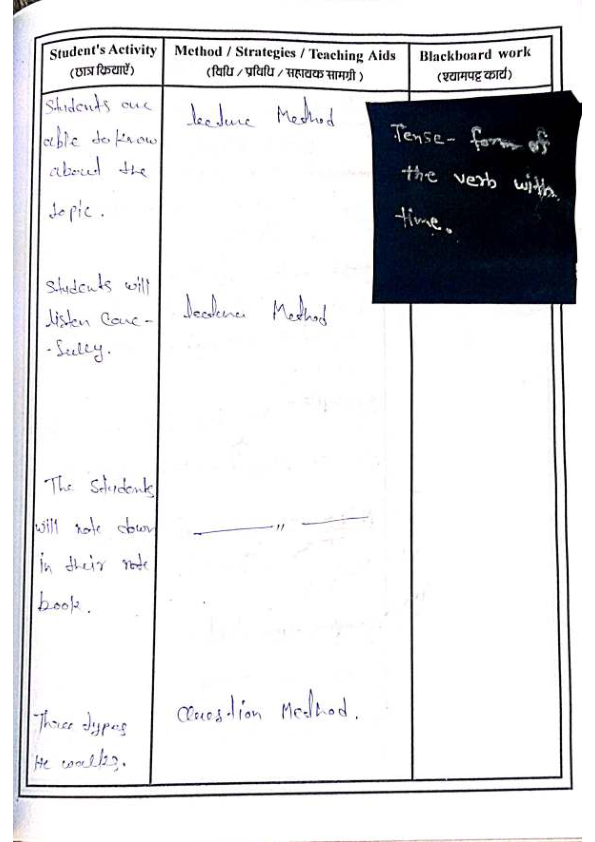 Student's Activity
(छात्र क्रियाएँ)
Method / Strategies / Teaching Aids
(विधि / प्रविधि / सहायक सामग्री)
Blackboard work
(श्यामपट्ट कार्य)
Students are
able to know
about the
topic.
Lecture Method
Tense- form of
the verb with
time.
Students will
listen care-
-fully.
Lecture Method
The Students
will note down
in their note
book.
——— " ———
Three types
He walks.
Question Method.